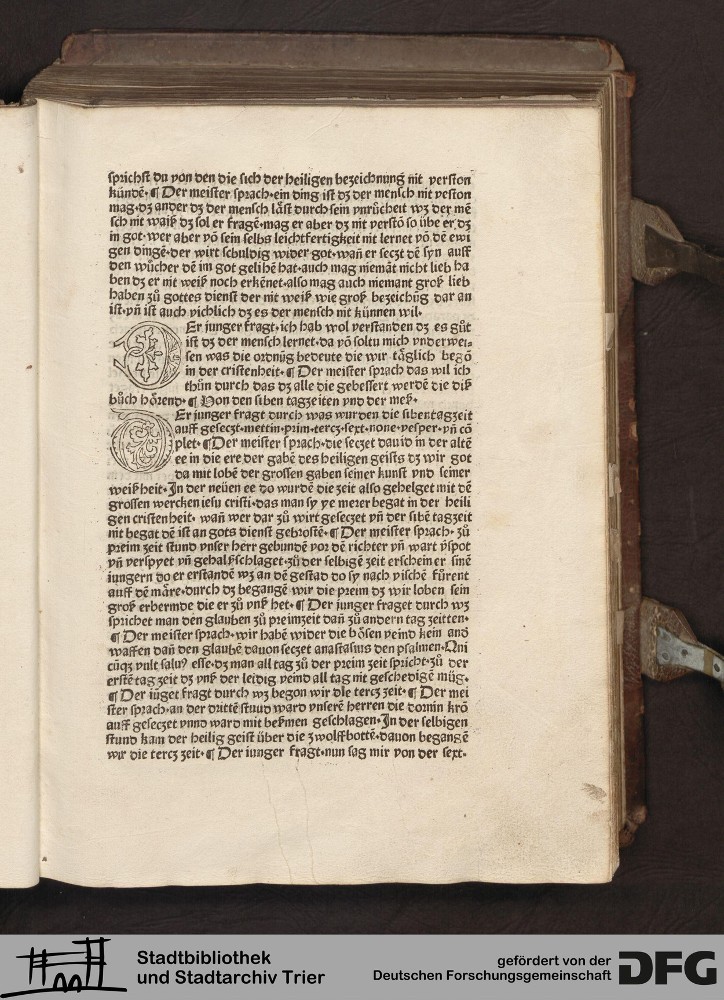 sprichst du von den die sich der heiligen bezeichnung nit verston
kündē·¶ Der meister sprach·ein ding ist dz der mensch nit veston
mag·dz ander dz der mensch läst durch sein vnrůcheit wz der mē
sch nit waiß dz sol er fragē·mag er aber dz nit verstō so übe er dz
in got·wer aber vō sein selbs leichtfertigkeit nit lernet vō dē ewi
gen dingē·der wirt schuldig wider got·wañ er seczt dē syn auff
den wůcher dē im got gelihē hat·auch mag niemāt nicht lieb ha
ben dz er nit weiß noch erkēnet·also mag auch niemant groß lieb
haben zů gottes dienst der nit weiß wie groß bezeichūg dar an
ist·vñ ist auch vichlich dz es der mensch nit künnen wil·
Er junger fragt·ich hab wol verstanden dz es gůt
ist dz der mensch lernet·da vō soltu mich vnderwei-
sen was die ordnūg bedeute die wir täglich begō
in der cristenheit·¶ Der meister sprach das wil ich
thůn durch das dz alle die gebessert werdē die diß
bůch hörend·¶ Von den siben tagzeiten vnd der meß·
Er junger fragt durch was wurden die sibentagzeit
auff geseczt·mettin·prim·tercz·sext·none·vesper·vñ cō
plet·¶Der meister sprach·die seczet dauid in der altē
ee in die ere der gabē des heiligen geists dz wir got
da mit lobē der grossen gaben seiner kunst vnd seiner
weißheit·In der neüen ee do wurdē die zeit also gehelget mit dē
grossen wercken iesu cristi·das man sy ye merer begat in der heili
gen cristenheit· wañ wer dar zů wirt geseczet vñ der sibē tagzeit
nit begat dē ist an gots dienst gebrostē·¶ Der meister sprach· zů
preim zeit stund vnser herr gebundē vor dē richter vñ wart vspot
vñ verspyet vñ gehalßschlaget·zů der selbigē zeit erschein er sinē
iungern do er erstandē wz an dē gestad do sy nach vischē fůrent
auff dē märe·durch dz begangē wir die preim dz wir loben sein
groß erbermde die er zů vnß het·¶ Der junger fraget durch wz
sprichet man den glauben zů preimzeit dañ zů andern tag zeitten·
¶ Der meister sprach·wir habē wider die bösen veind kein and
waffen dañ den glaubē dauon seczet anastasius den psalmen·Qui
cūqz vult saluꝰ esse·dz man all tag zů der preim zeit spricht·zů der
erstē tag zeit dz vnß der leidig veind all tag nit geschedigē müg·
¶ Der iūget fragt durch wz begon wir die tercz zeit·¶ Der mei
ster sprach·an der drittē stuud ward vnserē herren die dornin krō
auff geseczet vnnd ward mit beßmen geschlagen·In der selbigen
stund kam der heilig geist über die zwolffbottē·dauon begangē
wir die tercz zeit·¶ Der iunger fragt·nun sag mir von der sext·
Stadtbibliothek
und Stadtarchiv Trier
gefördert von der
Deutschen Forschungsgemeinschaft
DFG